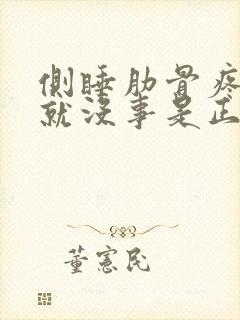 側睡肋骨疼
就沒事是正
董憲民